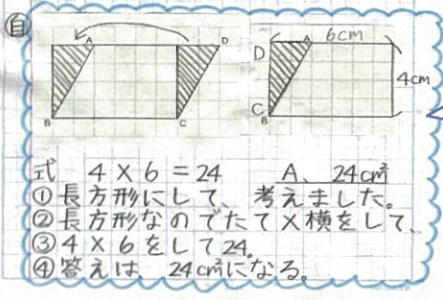 自
A D
B C
6cm
D A
4cm
C
B
式 4×6=24 A、24cm²
①長方形にして、考えました。
②長方形なのでたて×横をして、
③4×6をして24。
④答えは 24cm²になる。